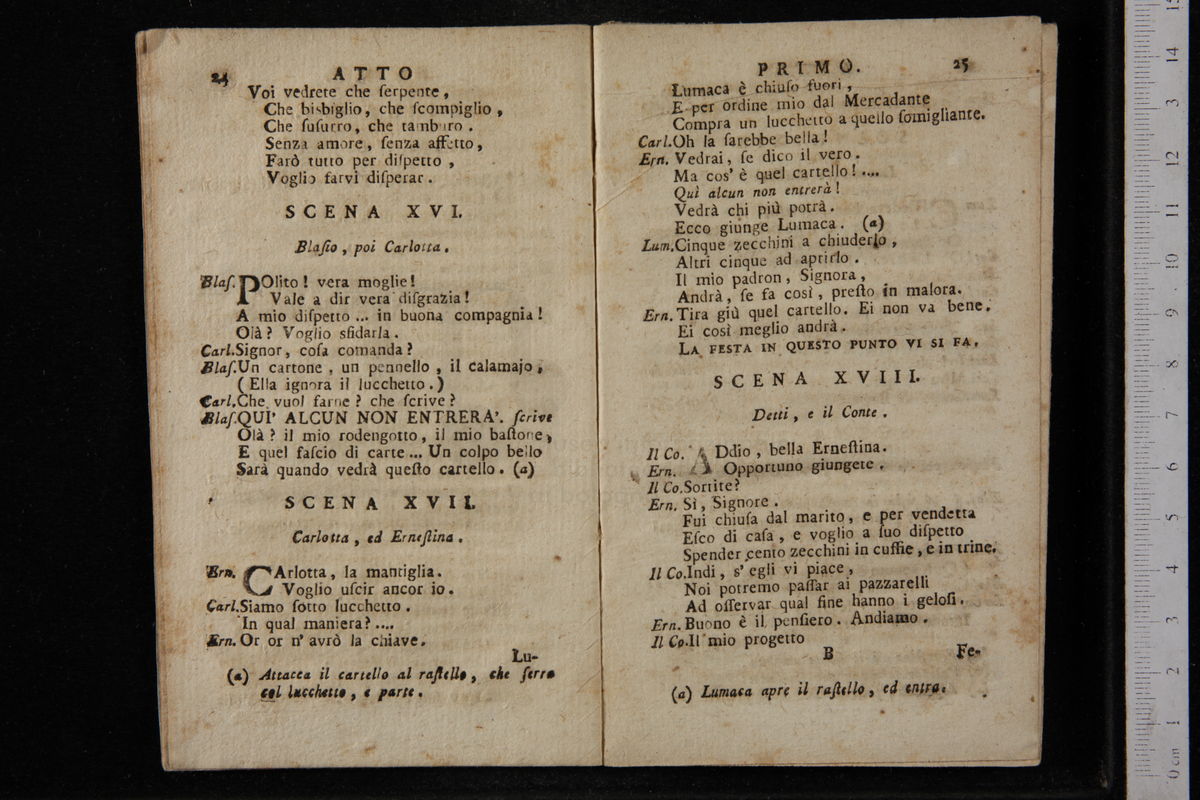 24 ATTO
Voi vedrete che ſerpente,
Che bisbiglio, che ſcompiglio,
Che ſuſurro, che tamburo.
Senza amore, ſenza affetto,
Farò tutto per diſpetto,
Voglio farvi diſperar.
SCENA XVI.
Blaſio, poi Carlotta.
Blaſ. POlito! vera moglie!
Vale a dir vera diſgrazia!
A mio diſpetto ... in buona compagnia!
Olà? Voglio sfidarla.
Carl. Signor, coſa comanda?
Blaſ. Un cartone, un pennello, il calamajo,
(Ella ignora il lucchetto.)
Carl. Che vuol farne? che ſcrive?
Blaſ. QUI' ALCUN NON ENTRERA'. ſcrive
Olà? il mio rodengotto, il mio baſtone,
E quel faſcio di carte ... Un colpo bello
Sarà quando vedrà queſto cartello. (a)
SCENA XVII.
Carlotta, ed Erneſtina.
Ern. CArlotta, la mantiglia.
Voglio uſcir ancor io.
Carl. Siamo ſotto lucchetto.
In qual maniera? ....
Ern. Or or n' avrò la chiave.
Lu-
(a) Attacca il cartello al raſtello, che ſerra
col lucchetto, e parte.
PRIMO. 25
Lumaca è chiuſo fuori,
E per ordine mio dal Mercadante
Compra un lucchetto a quello ſomigliante.
Carl. Oh la ſarebbe bella!
Ern. Vedrai, ſe dico il vero.
Ma cos' è quel cartello! ....
Quì alcun non entrerà!
Vedrà chi più potrà.
Ecco giunge Lumaca. (a)
Lum. Cinque zecchini a chiuderlo,
Altri cinque ad aprirlo.
Il mio padron, Signora,
Andrà, ſe fa così, preſto in malora.
Ern. Tira giù quel cartello. Ei non va bene.
Ei così meglio andrà.
LA FESTA IN QUESTO PUNTO VI SI FA.
SCENA XVIII.
Detti, e il Conte.
Il Co. ADdio, bella Erneſtina.
Ern. Opportuno giungete.
Il Co. Sortite?
Ern. Sì, Signore.
Fui chiuſa dal marito, e per vendetta
Eſco di caſa, e voglio a ſuo diſpetto
Spender cento zecchini in cuffie, e in trine.
Il Co. Indi, s' egli vi piace,
Noi potremo paſſar ai pazzarelli
Ad oſſervar qual fine hanno i geloſi.
Ern. Buono è il penſiero. Andiamo.
Il Co. Il mio progetto
B Fe-
(a) Lumaca apre il raſtello, ed entra.